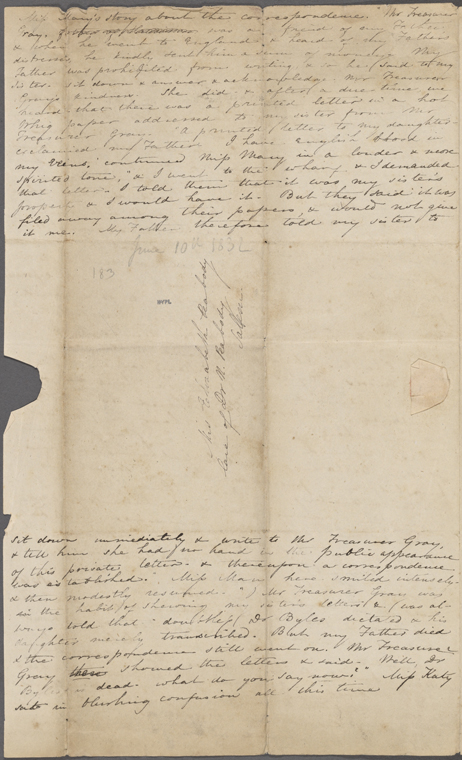 Miss Mary's story about the correspondence. "Mr Treasurer
Gray, was a friend of my Father
& when he went to England & heard of my Fathers
distresses, he kindly sent him a sum of money. My
Father was prohibited from writing & so he said to my
sister, sit down & answer & acknowledge Mr Treasurer
Gray's kindness. She did & after a due time we
heard that there was a printed letter in a
paper addressed to my sister from Mr
Treasurer Gray. 'A printed letter to my daughter'
exclaimed my Father! I have English blood in
my veins," continued Miss Mary in a louder & more
spirited tone, "& I went to the wharf & I demanded
that letter. I told them that it was my sister's
property & I would have it. But they said it was
filed away among their papers, & would not give
it me. My Father therefore told my sister to
June 10th 1832
183
BPL
Miss Elizabeth Peabody
Care of Dr N. Peabody
Salem
sit down immediately & write to Mr Treasurer Gray,
& tell him she had no hand in the public appearance
of this private letter & thereupon a correspondence
was established. Miss Mary here smiled intensely
& then modestly resumed. "Mr Treasurer Gray was
in the habit of shewing my sister's letters & was al-
ways told that doubtless Dr Byles dictated & his
daughter merely transcribed. But my Father died
& the correspondence still went on. Mr Treasurer
Gray then showed the letters & said. 'Well, Dr
Byles is dead. what do you say now?'" Miss Katty
sat in blushing confusion all this time